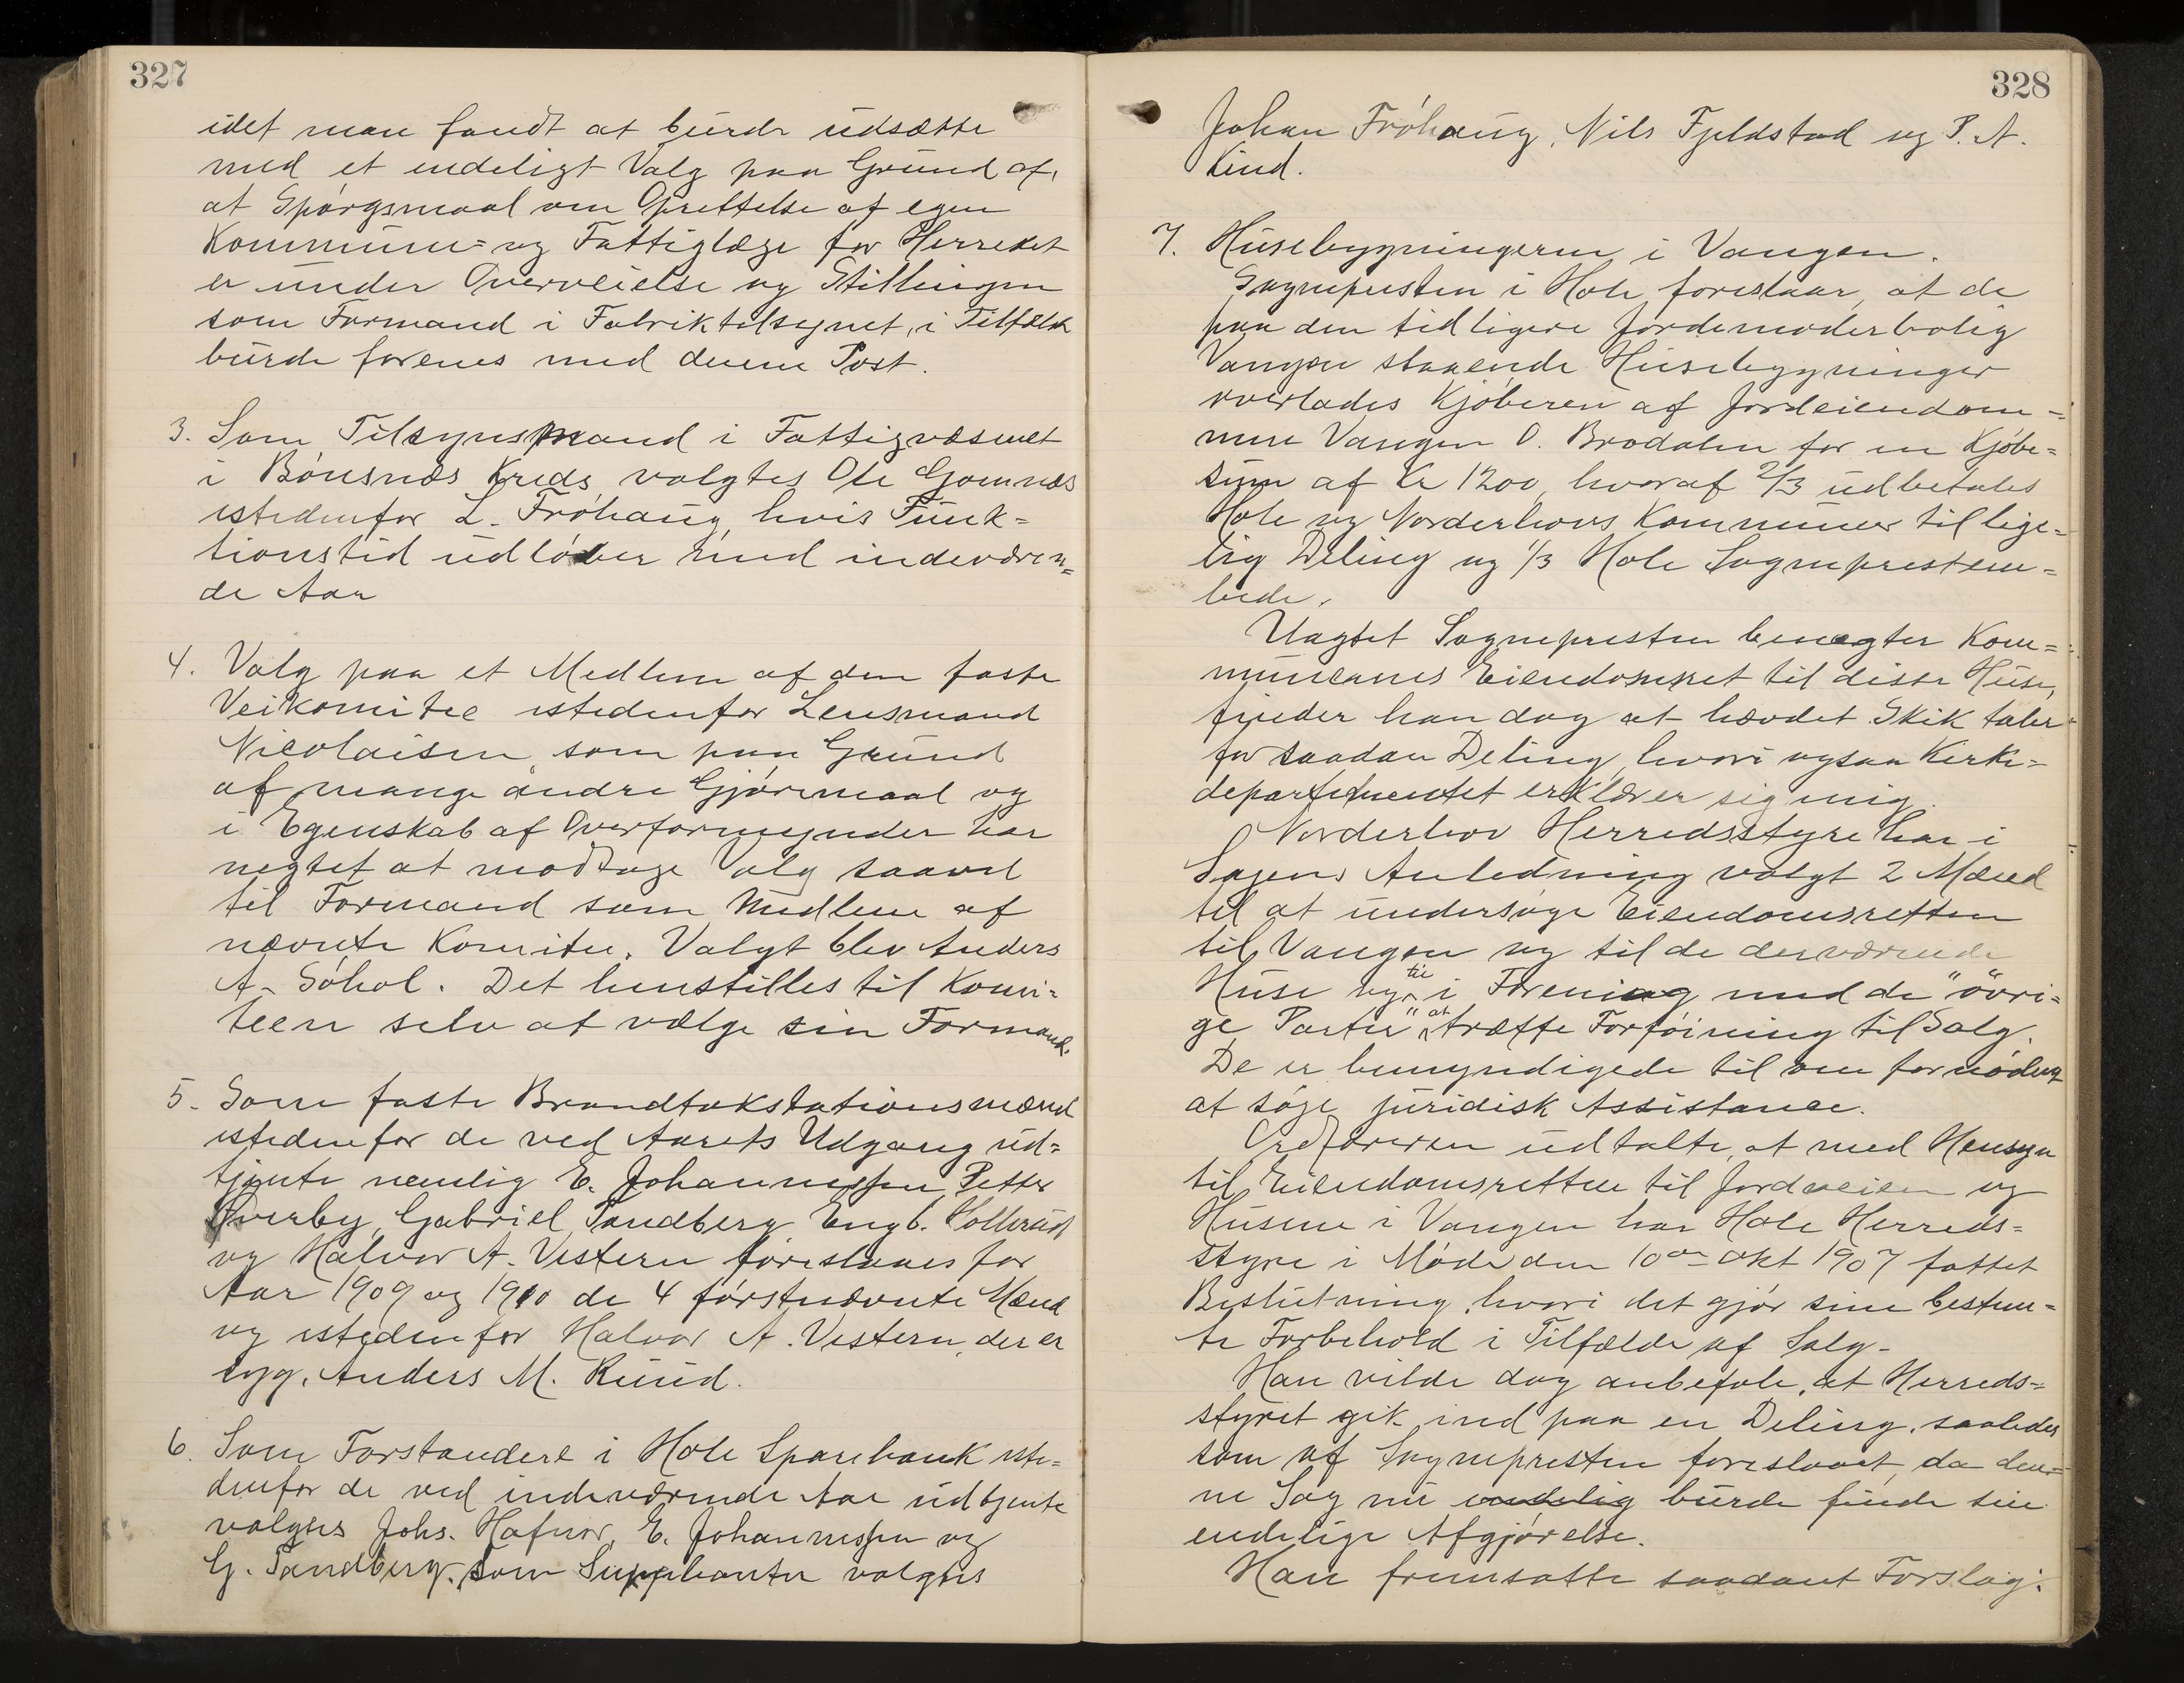 327
idet man fandt at burde udsætte
med et endeligt Valg paa Grund af,
at Spørgsmaal om Oprettelse af egen
Kommune= og Fattiglæge for Herredet
er under Overveielse og Stillingen
som Formand i Fabriktilsynet, i Tilfælde
burde forenes med denne Post.
3. Som Tilsynsmand i Fattigvæsenet
i Bónsnæs Kreds valgtes Ole Gomnæs
istedenfor L. Fróhaug, hvis Funk=
tionstid udlóber med indeværen=
de Aar
4. Valg paa et Medlem af den faste
Veikomite istedenfor Lensmand
Nicolaisen, som paa Grund
af mange andre Gjøremaal og
i Egenskab af Overformynder har
negtet at modtage Valg saavel
til Formand som Medlem af
nævnte Komite. Valgt blev Anders
A. Sóhol. Det henstilles til Komi=
teen selv at vælge sin Formand.
5. Som faste Brandtakstationsmænd
istedenfor de ved Aarets Udgang ud=
tjente nemlig E. Johannessen, Petter
Øverby, Gabriel Sandberg, Engb. Hollerud
og Halvor A. Vestern foreslaaes for
Aar 1909 og 1910 de 4 fórstnævnte Mænd
og istedenfor Halvor A. Vestern, der er
syg, Anders M. Ruud.
6. Som Forstandere i Hole Sparebank iste=
denfor de ved indeværende Aar udtjente
valgtes Johs. Hafnor, E. Johannessen og
G. Sandberg. Som Suppleanter valgtes
328
Johan Fróhaug, Nils Fjeldstad og P. A.
Lind.
7. Husebygningerne i Vangen.
Sognepresten i Hole foreslaar, at de
paa den tidligere Jordemoderbolig
Vangen staaende Husebygninger
overlades Kjøberen af Jordeiendom=
men Vangen O. Brodalen for en Kjøbe=
sum af Kr 1200, hvoraf 2/3 udbetales
Hole og Norderhovs Kommuner til lige=
lig Deling og 1/3 Hole Sogneprestem=
bede.
Uagtet Sognepresten benegter Kom=
munernes Eiendomsret til disse Huse,
finder han dog at hævdet Skik taler
for saadan Deling, hvori ogsaa Kirke=
departementet erklærer sig enig.
Norderhov Herredsstyre har i
Sagens Anledning valgt 2 Mænd
til at undersøge Eiendomsretten
til Vangen og til de derværende
Huse og til i Forening med de "øvri=
ge Parter" at træffe Forføining til Salg.
De er bemyndigede til om fornóden
at søge juridisk Assistance.
Ordføreren udtalte, at med Hensyn
til Eiendomsretten til Jordveien og
Husene i Vangen har Hole Herreds=
styre i Møde den 10de Okt 1907 fattet
Beslutning, hvori det gjør sine bestem=
te Forbehold i Tilfælde af Salg.
Han vilde dog anbefale, at Herreds=
styret gik ind paa en Deling, saaledes
som af Sognepresten foreslaaet, da den=
ne Sag nu endelig burde finde sin
endelige Afgjørelse.
Han fremsatte saadant Forslag: